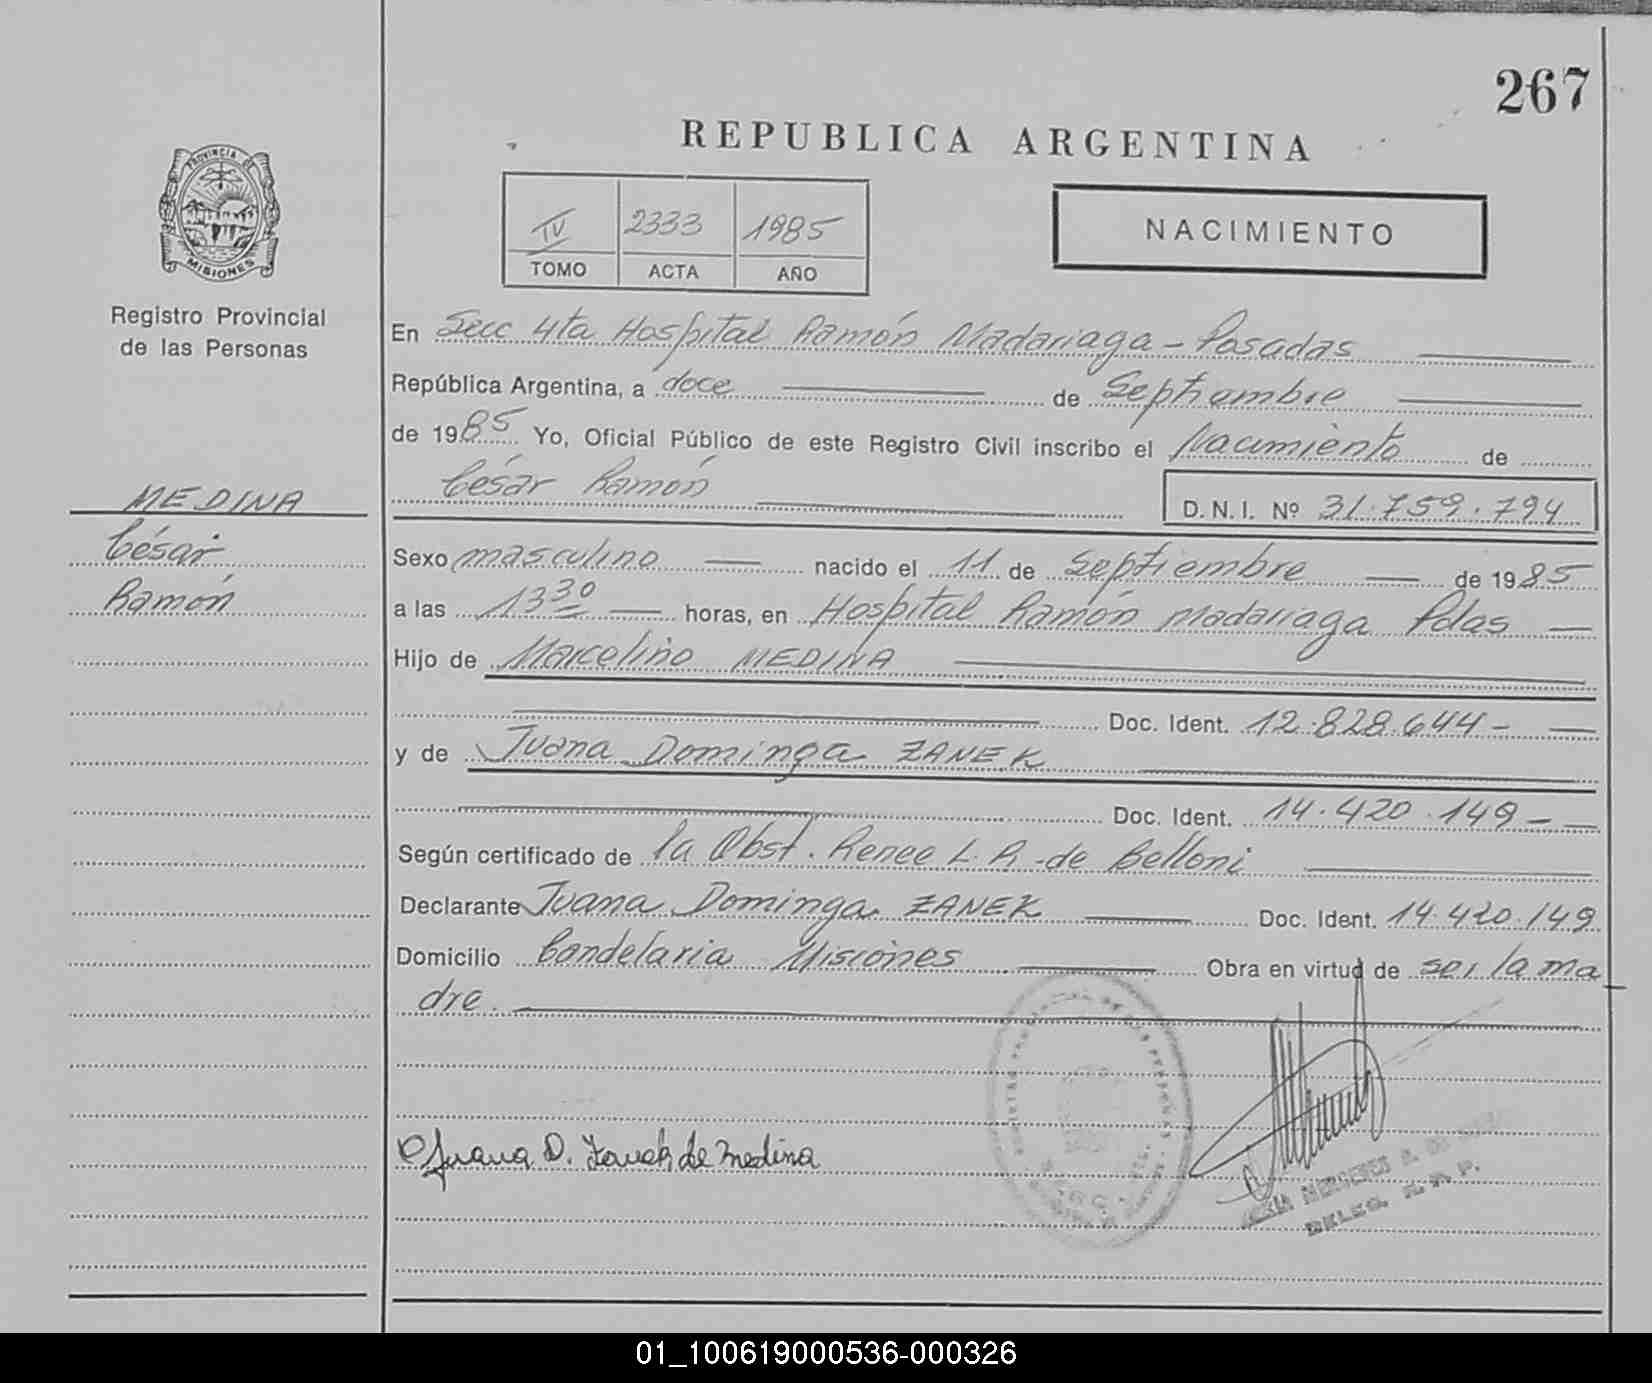 267
REPUBLICA ARGENTINA
PROVINCIA DE
MISIONES
Registro Provincial
de las Personas
IV 2333 1985
TOMO ACTA AÑO
NACIMIENTO
En Secc 4ta Hospital Ramón Madariaga - Posadas
República Argentina, a doce de Septiembre
de 1985 Yo, Oficial Público de este Registro Civil inscribo el Nacimiento de
César Ramón D.N.I. Nº 31.759.794
MEDINA
César
Ramón
Sexo masculino nacido el 11 de Septiembre de 1985
a las 13 30 horas, en Hospital Ramón Madariaga Pdas
Hijo de Marcelino MEDINA
Doc. Ident. 12.828.644-
y de Juana Dominga ZANEK
Doc. Ident. 14.420.149-
Según certificado de la Obst. Renee L. R. de Belloni
Declarante Juana Dominga ZANEK Doc. Ident. 14.420.149
Domicilio Candelaria Misiones Obra en virtud de ser la ma
dre.
Juana D. Zanek de Medina
DELEG. R. P. P.
01_100619000536-000326